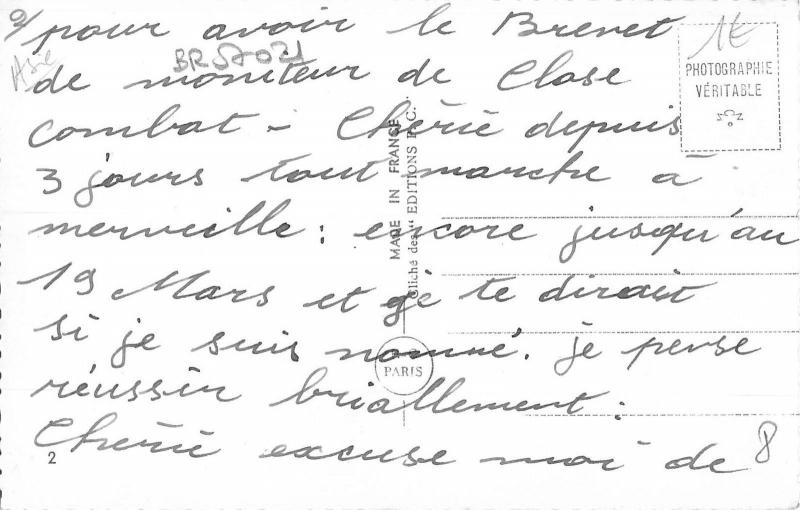 2/ pour avoir le Brevet
de moniteur de Close
combat - Chérie depuis
3 jours tout marche à
merveille : encore jusqu'au
19 Mars et gè te dirait
si je suis nommé. je pense
réussir briallement :
Chérie excuse moi de
1€
PHOTOGRAPHIE
VÉRITABLE
MADE IN FRANCE
Cliché des "EDITIONS P. C."
PARIS
2
8